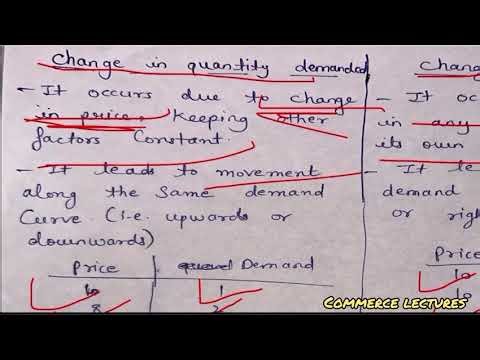 Change in quantity demanded
- It occurs due to change
in price, keeping other
factors Constant.
- It leads to movement
along the same demand
Curve (i.e. upwards or
downwards)
Price Demand
10 1
8 2
Chang
- It oc
in any
its own
- It le
demand
or righ
Price
10
10
COMMERCE LECTURES